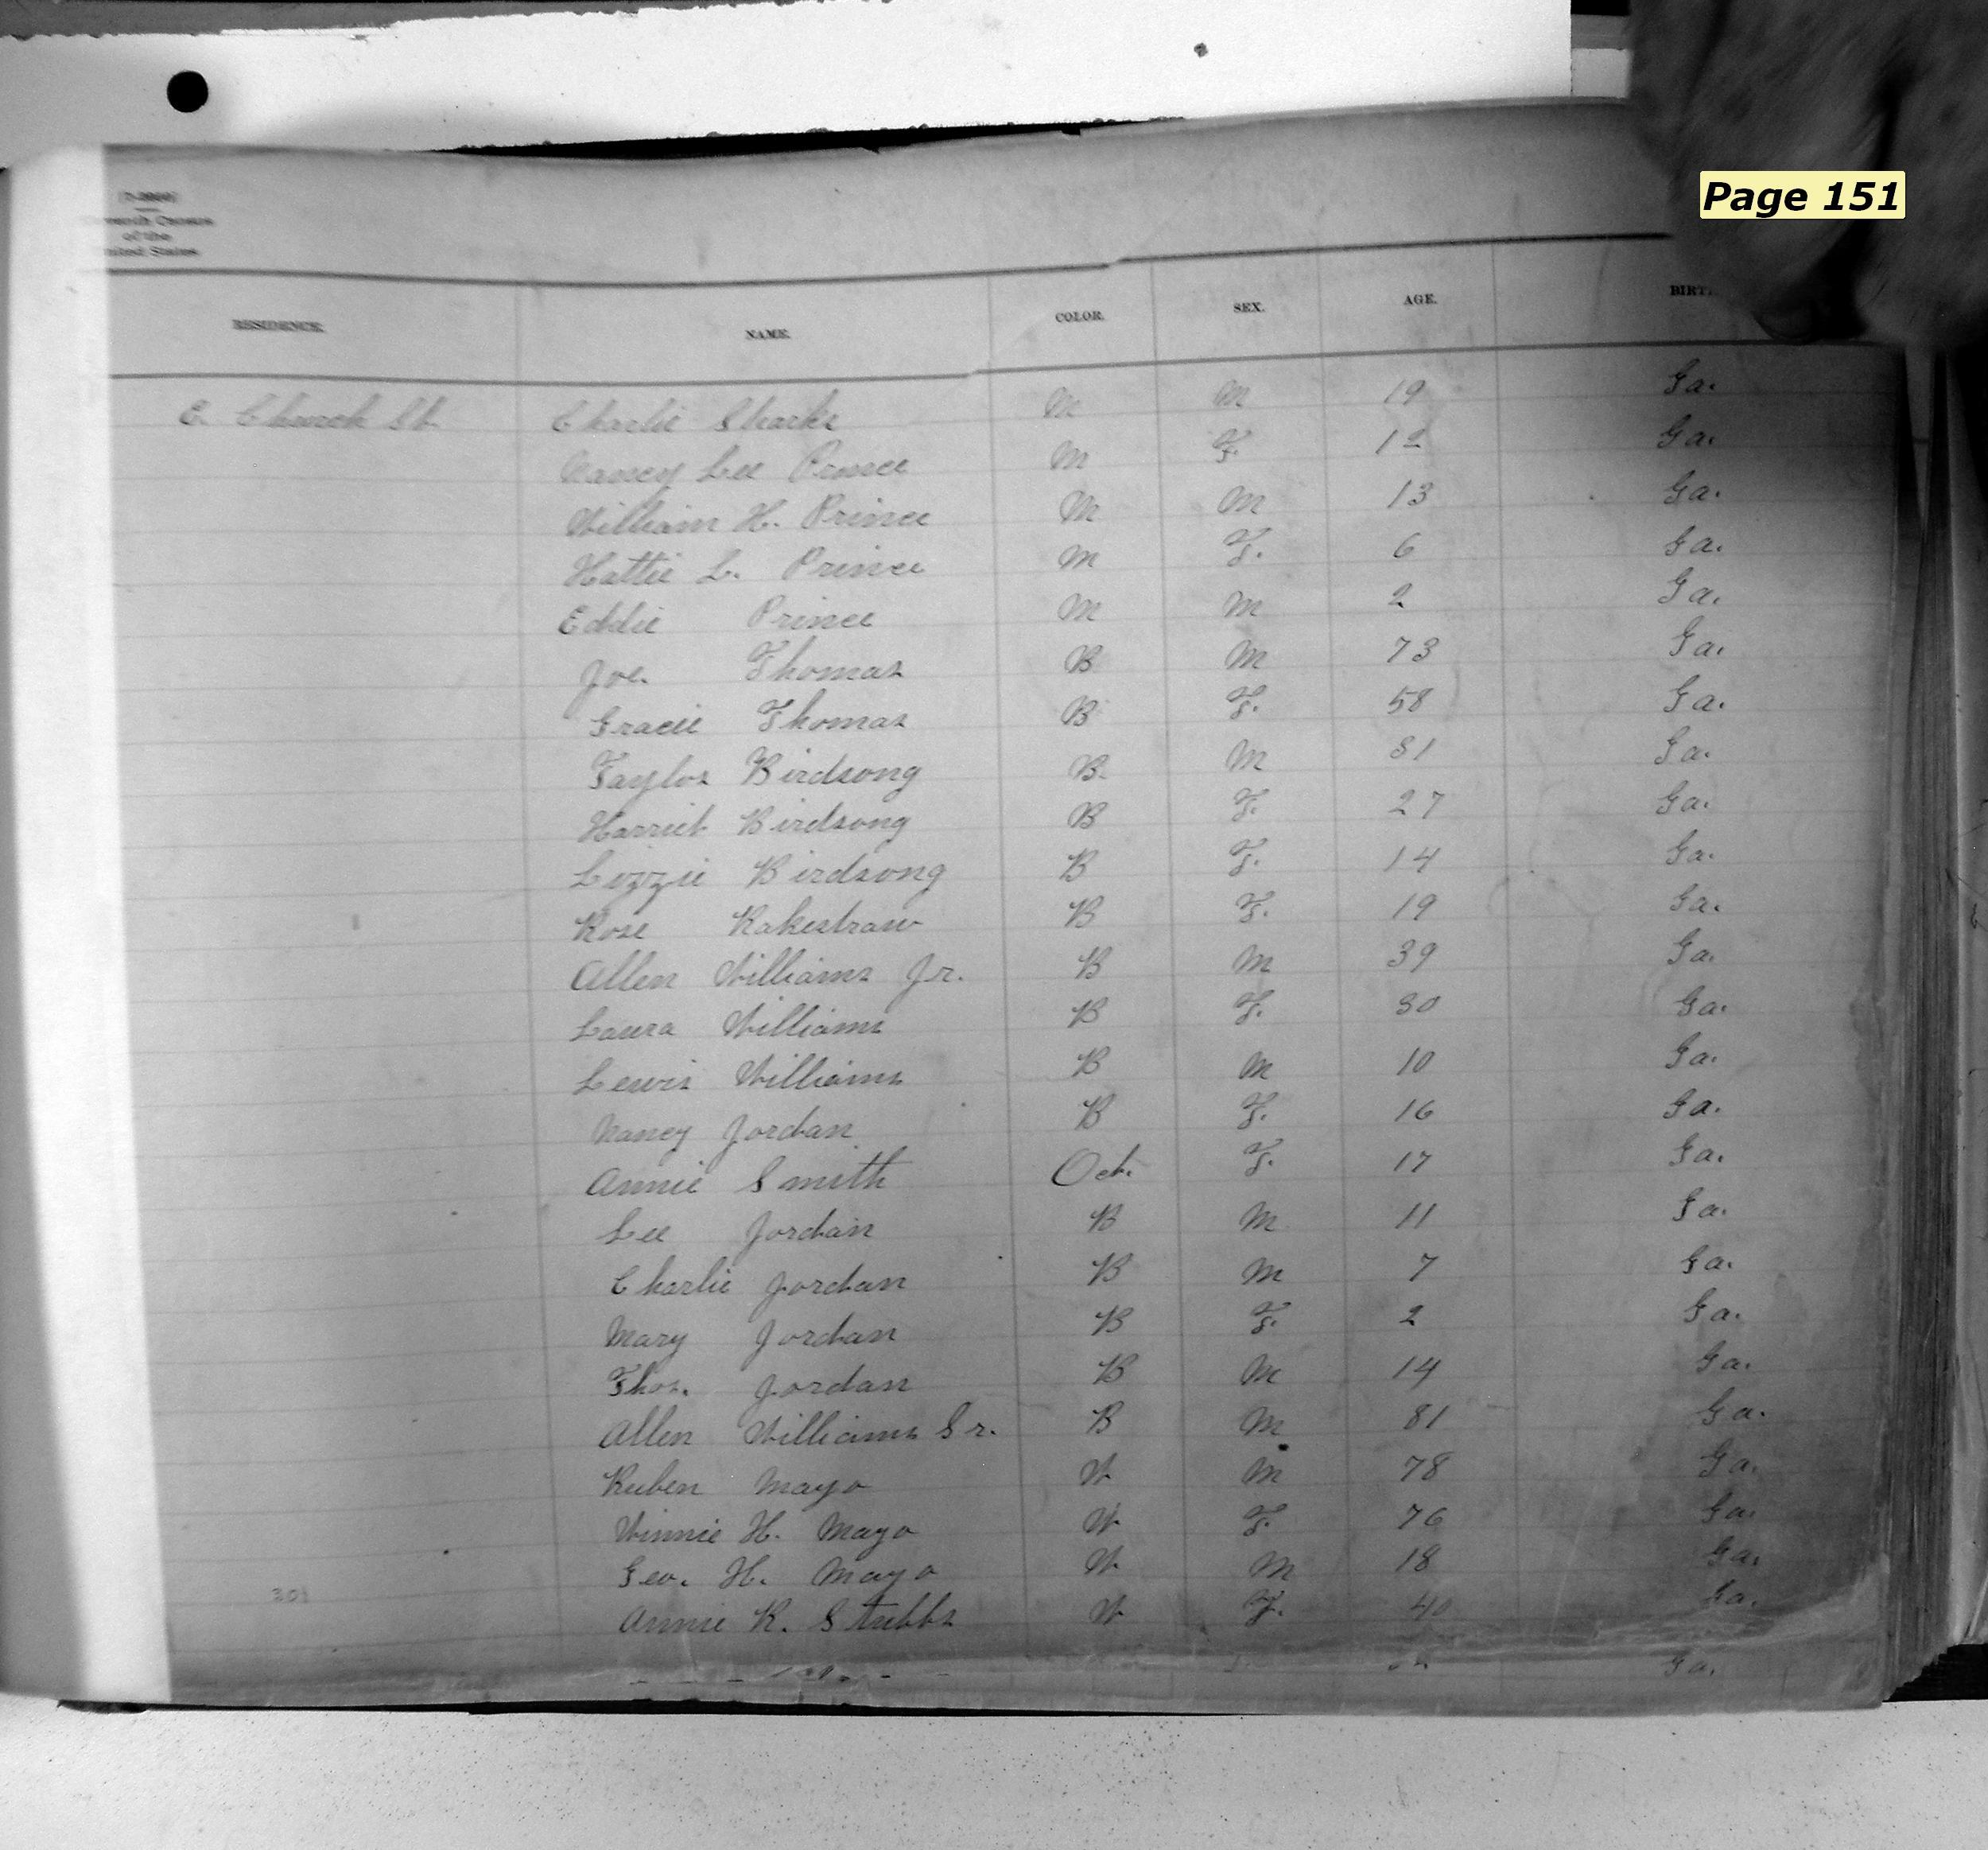 Page 151
[7-
Census
of the
United States
RESIDENCE. NAME. COLOR. SEX. AGE. BIRT
E. Church St. Charlie Sharks M M 19 Ga.
Nancy Lee Prince M F. 12 Ga.
William H. Prince M M 13 Ga.
Hattie L. Prince M F. 6 Ga.
Eddie Prince M M 2 Ga.
Joe. Thomas B M 73 Ga.
Gracie Thomas B F. 58 Ga.
Taylor Birdsong B. M 31 Ga.
Harriet Birdsong B F. 27 Ga.
Lizzie Birdsong B F. 14 Ga.
Rose Rakestraw B F. 19 Ga.
Allen Williams Jr. B M 39 Ga.
Laura Williams B F. 30 Ga.
Lewis Williams B M 10 Ga.
Nancy Jordan B F. 16 Ga.
Annie Smith Oct. F. 17 Ga.
Lee Jordan B M 11 Ga.
Charlie Jordan B M 7 Ga.
Mary Jordan B F. 2 Ga.
Thos. Jordan B M 14 Ga.
Allen Williams Sr. B M 81 Ga.
Ruben Mayo W M 78 Ga.
Winnie H. Mayo W F. 76 Ga.
Geo. H. Mayo W M 18 Ga.
301 Annie R. Stubbs W F. 40 Ga.
Ga.